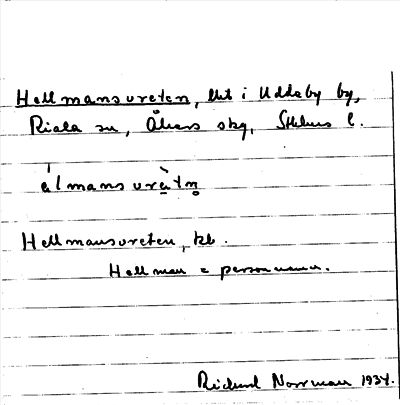 Hellmansvreten, lht i Uddeby by,
Riala sn, Åkers skg, Sthlms l.
élmansvrètn̥
Hellmansvreten, kb.
Hellman = personnamn.
Richard Norrman 1934.